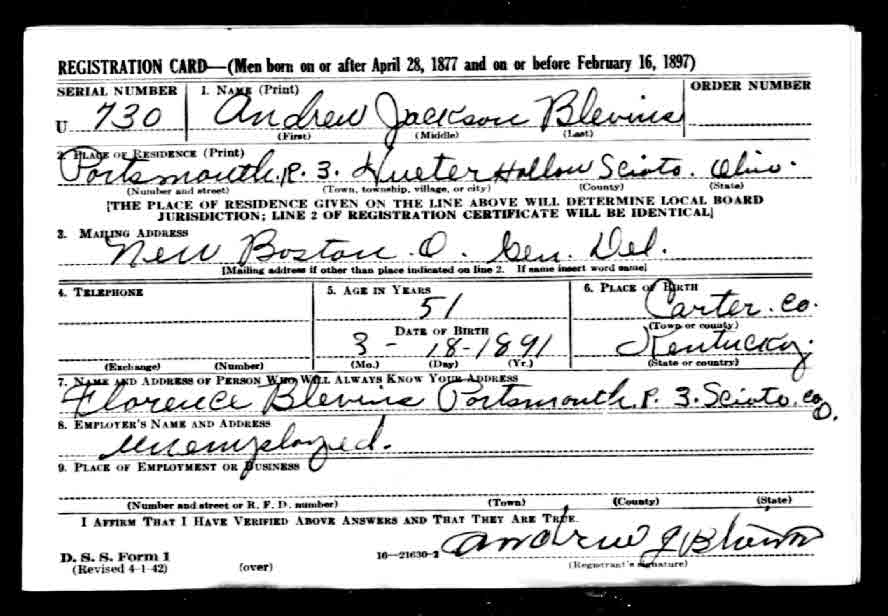 REGISTRATION CARD—(Men born on or after April 28, 1877 and on or before February 16, 1897)
SERIAL NUMBER 1. NAME (Print) ORDER NUMBER
U 730 Andrew Jackson Blevins
(First) (Middle) (Last)
2. PLACE OF RESIDENCE (Print)
Portsmouth. R. 3. Hueter Hollow Scioto. Ohio.
(Number and street) (Town, township, village, or city) (County) (State)
[THE PLACE OF RESIDENCE GIVEN ON THE LINE ABOVE WILL DETERMINE LOCAL BOARD
JURISDICTION; LINE 2 OF REGISTRATION CERTIFICATE WILL BE IDENTICAL]
3. MAILING ADDRESS
New Boston. O. Gen. Del.
[Mailing address if other than place indicated on line 2. If same insert word same]
4. TELEPHONE 5. AGE IN YEARS 6. PLACE OF BIRTH
51 Carter. Co.
DATE OF BIRTH (Town or county)
3 - 18-1891 Kentucky.
(Exchange) (Number) (Mo.) (Day) (Yr.) (State or country)
7. NAME AND ADDRESS OF PERSON WHO WILL ALWAYS KNOW YOUR ADDRESS
Florence Blevins Portsmouth. R. 3. Scioto. Co. O.
8. EMPLOYER'S NAME AND ADDRESS
Unemployed.
9. PLACE OF EMPLOYMENT OR BUSINESS
(Number and street or R. F. D. number) (Town) (County) (State)
I AFFIRM THAT I HAVE VERIFIED ABOVE ANSWERS AND THAT THEY ARE TRUE.
D. S. S. Form 1 16—21630-2 Andrew J Blevins
(Revised 4-1-42) (over) (Registrant's signature)